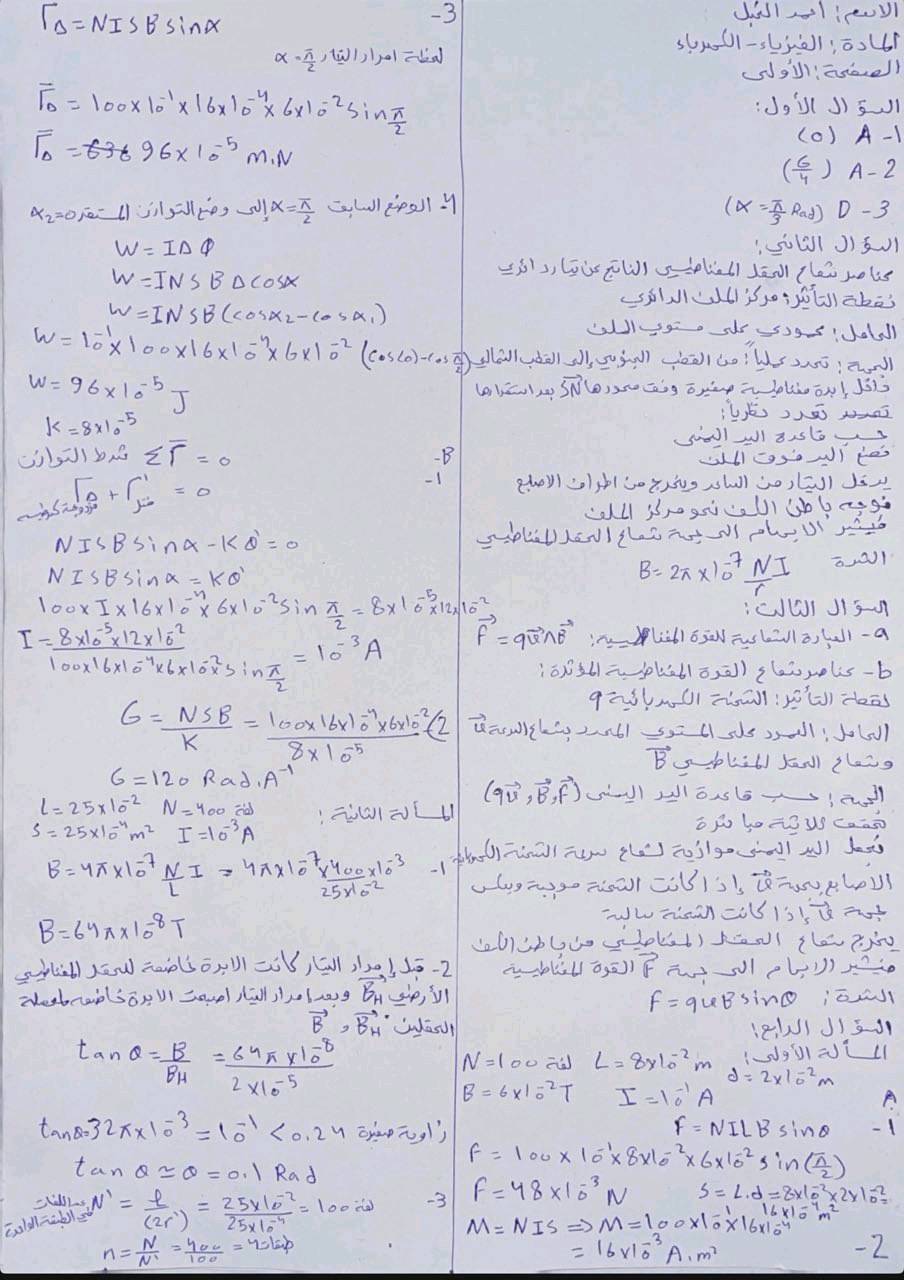 الاسم: أحمد الخبل
المادة: الفيزياء - الكهرباء
الصفحة: الأولى
السؤال الأول:
1- A (0)
2- A (6/4)
3- D (α = π/3 Rad)
السؤال الثاني:
عناصر شعاع الحقل المغناطيسي الناتج عن تيار دائري
نقطة التأثير: مركز الملف الدائري
الحامل: عمودي على مستوي الملف
الجهة: تحدد عملياً: من القطب الجنوبي إلى القطب الشمالي
داخل إبرة مغناطيسية صغيرة وفق محورها SN بعد استقرارها
تحدد نظرياً:
حسب قاعدة اليد اليمنى
نضع اليد فوق الملف
يدخل التيار من الساعد ويخرج من اطراف الاصابع
نوجه باطن الكف نحو مركز الملف
فيشير الابهام الى جهة شعاع الحقل المغناطيسي
الشدة B = 2π×10⁻⁷ NI/r
السؤال الثالث:
a- العبارة الشعاعية للقوة المغناطيسية: F = qυ∧B
b- عناصر شعاع القوة المغناطيسية المؤثرة:
نقطة التأثير: الشحنة الكهربائية q
الحامل: العمود على المستوي المحدد بشعاع السرعة υ
وشعاع الحقل المغناطيسي B
الجهة: حسب قاعدة اليد اليمنى (qυ, B, F)
تحقق ثلاثية مباشرة
نجعل اليد اليمنى موازية لشعاع سرعة الشحنة الكهربائية
الاصابع بجهة υ إذا كانت الشحنة موجبة وبعكس
جهة υ إذا كانت الشحنة سالبة
يخرج شعاع الحقل المغناطيسي من باطن الكف
فيشير الابهام الى جهة F القوة المغناطيسية
الشدة: F = qυB sinθ
السؤال الرابع:
المسألة الأولى: N = 100 لفة L = 8×10⁻² m
d = 2×10⁻² m
B = 6×10⁻² T I = 10⁻¹ A
A
1- F = NILB sinθ
F = 100×10⁻¹×8×10⁻²×6×10⁻² sin(π/2)
F = 48×10⁻³ N S = L.d = 8×10⁻²×2×10⁻²
16×10⁻⁴ m²
2- M = NIS ⇒ M = 100×10⁻¹×16×10⁻⁴
= 16×10⁻³ A.m²
3- Γ_Δ = NISB sinα
لحظة امرار التيار α = π/2
Γ_Δ = 100×10⁻¹×16×10⁻⁴×6×10⁻² sin π/2
Γ_Δ = 96×10⁻⁵ m.N
4- الوضع السابق α = π/2 إلى وضع التوازن المستقر α₂ = 0
W = IΔΦ
W = INSBΔcosα
W = INSB(cosα₂ - cosα₁)
W = 10⁻¹×100×16×10⁻⁴×6×10⁻² (cos(0) - cos π/2)
W = 96×10⁻⁵ J
K = 8×10⁻⁵
B- شرط التوازن ΣΓ = 0
1- Γ_Δ + Γ' فتل = 0
NISB sinα - Kθ' = 0
NISB sinα = Kθ'
100×I×16×10⁻⁴×6×10⁻² sin π/2 = 8×10⁻⁵×12×10⁻²
I = 8×10⁻⁵×12×10⁻² / 100×16×10⁻⁴×6×10⁻² sin π/2 = 10⁻³ A
2) G = NSB/K = 100×16×10⁻⁴×6×10⁻² / 8×10⁻⁵
G = 120 Rad.A⁻¹
المسألة الثانية: L = 25×10⁻² N = 400 لفة
s = 25×10⁻⁴ m² I = 10⁻³ A
1- B = 4π×10⁻⁷ N/L I = 4π×10⁻⁷×400×10⁻³ / 25×10⁻²
B = 64π×10⁻⁸ T
2- قبل إمرار التيار كانت الابرة خاضعة للحقل المغناطيسي
الأرضي B_H وبعد امرار التيار اصبحت الابرة خاضعة لمحصلة
الحقلين B_H و B
tanθ = B/B_H = 64π×10⁻⁸ / 2×10⁻⁵
tanθ = 32π×10⁻³ = 10⁻¹ < 0.24 زاوية صغيرة
tanθ ≃ θ = 0.1 Rad
3- عدد اللفات في الطبقة الواحدة N' = ℓ/(2r') = 25×10⁻² / 25×10⁻⁴ = 100 لفة
n = N/N' = 400/100 = 4 طبقات